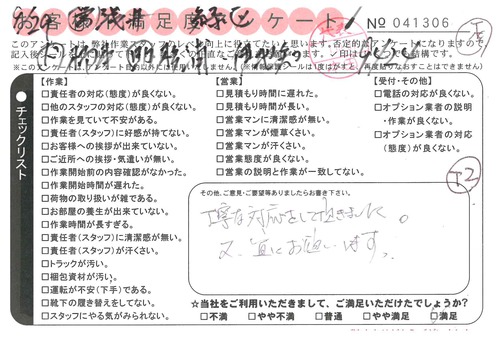 お客様満足度アンケート
No 041306
このアンケートは、弊社作業スタッフのレベル向上に役立てたいと思います。否定的なアンケートになりますので、
チェックリスト
【作業】
□責任者の対応(態度)が良くない。
□他のスタッフの対応(態度)が良くない。
□作業を見ていて不安がある。
□責任者(スタッフ)に好感が持てない。
□お客様への挨拶が出来ていない。
□ご近所への挨拶・気遣いが無い。
□作業開始前の内容確認がなかった。
□作業開始時間が遅れた。
□荷物の取り扱いが雑である。
□お部屋の養生が出来ていない。
□作業時間が長すぎる。
□責任者(スタッフ)に清潔感が無い。
□責任者(スタッフ)が汗くさい。
□トラックが汚い。
□梱包資材が汚い。
□運転が不安(下手)である。
□靴下の履き替えをしてない。
□スタッフにやる気がみられない。
【営業】
□見積もり時間に遅れた。
□見積もり時間が長い。
□営業マンに清潔感が無い。
□営業マンが煙草くさい。
□営業マンが汗くさい。
□営業態度が良くない。
□営業の説明と作業が一致してない。
【受付・その他】
□電話の対応が良くない。
□オプション業者の説明
・作業が良くない。
□オプション業者の対応
(態度)が良くない。
その他、ご意見・ご要望等ありましたらお書き下さい。
丁寧な対応をして頂きました。
又、宜しくお願いします。
☆当社をご利用いただきまして、ご満足いただけたでしょうか?
□不満 □やや不満 □普通 □やや満足 □満足